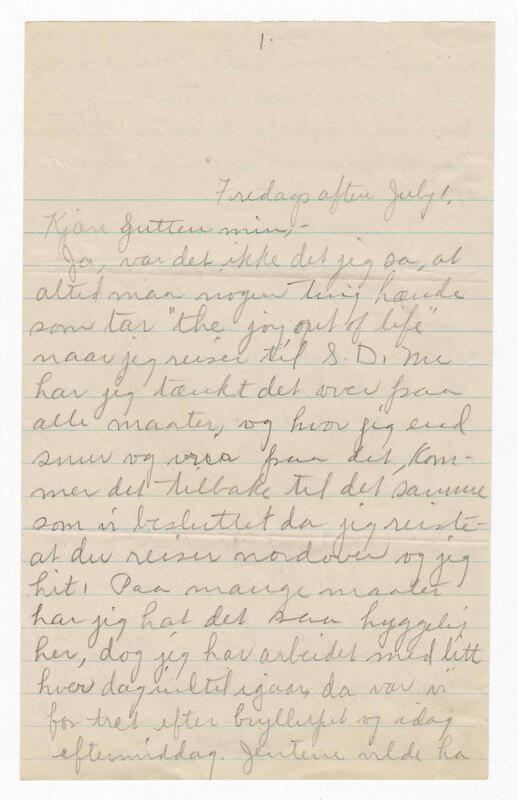 1.
Fredags aften July 1,
Kjære Gutten min,-
Ja, var det ikke det jeg sa, at
altid maa nogen ting hænde
som tar "the joy out of life"
naar jeg reiser til S. D. Nu
har jeg tænkt det over paa
alle maater, og hvor jeg end
snur og vrir paa det, kom-
mer det tilbake til det samme
som vi besluttet da jeg reiste-
at du reiser nordover og jeg
hit! Paa mange maater
har jeg hat det saa hyggelig
her, dog jeg har arbeidet med litt
hver dag indtil igaar, da var vi
for træt efter bryllupet og idag
eftermiddag. Jentene vilde ha